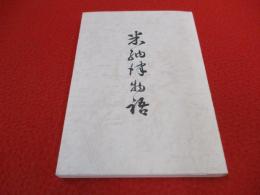 米納津物語